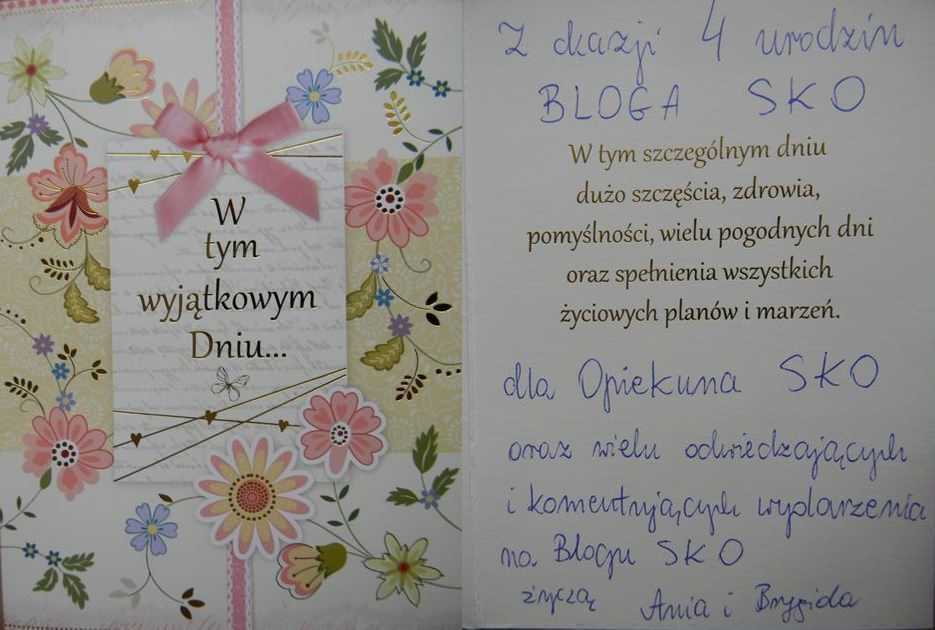 W
tym
wyjątkowym
Dniu...
Z okazji 4 urodzin
BLOGA SKO
W tym szczególnym dniu
dużo szczęścia, zdrowia,
pomyślności, wielu pogodnych dni
oraz spełnienia wszystkich
życiowych planów i marzeń.
dla Opiekuna SKO
oraz wielu odwiedzających
i komentujących wydarzenia
na Blogu SKO
życzą Ania i Brygida